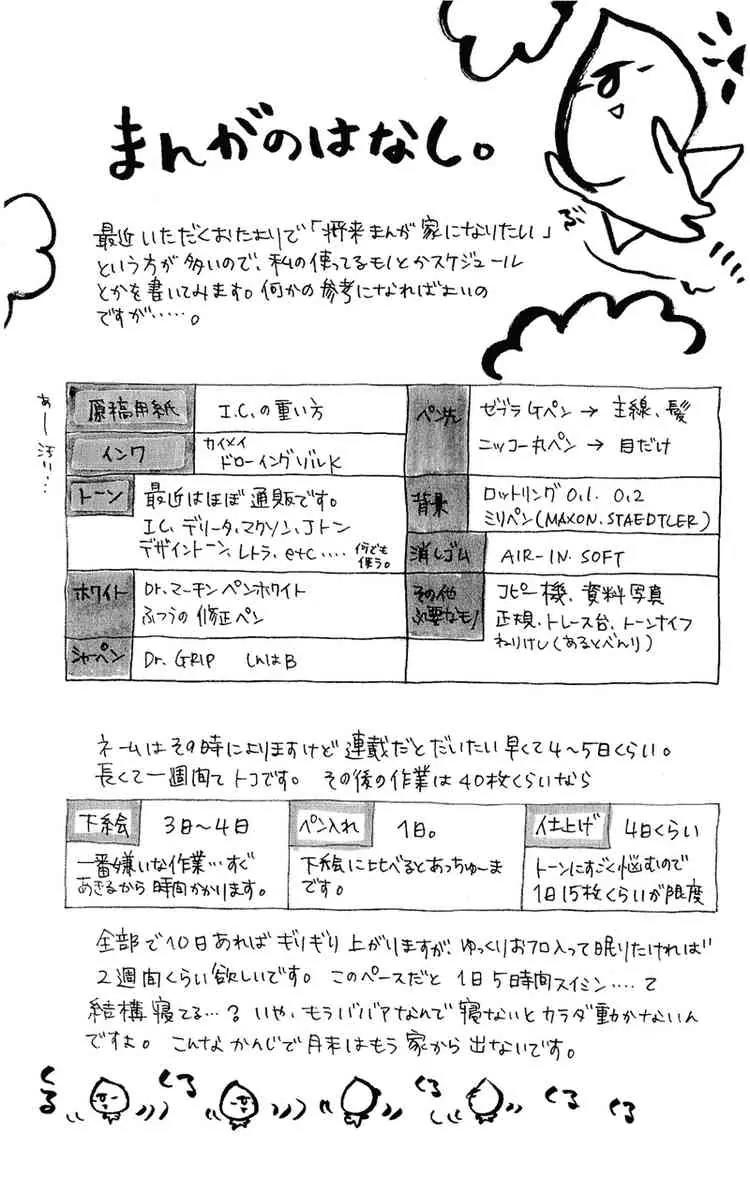 まんがのはなし。
最近いただくおたよりで「将来まんが家になりたい」
という方が多いので、私の使ってるモノとかスケジュール
とかを書いてみます。何かの参考になればよいの
ですが……。
あー汚い…
原稿用紙
I.C.の重い方
インク
カイメイ
ドローイングゾルK
トーン
最近はほぼ通販です。
I.C. デリータ、マクソン、Jトン
デザイントーン、レトラ、etc‥‥何でも使う。
ホワイト
Dr.マーチン ペンホワイト
ふつうの修正ペン
シャーペン
Dr. GRIP しんはB
ペン先
ゼブラGペン → 主線、髪
ニッコー丸ペン → 目だけ
背景
ロットリング 0.1. 0.2
ミリペン(MAXON. STAEDTLER)
消しゴム
AIR-IN. SOFT
その他
必要なモノ
コピー機、資料写真
定規、トレース台、トーンナイフ
ねりけし(あるとべんり)
ネームはその時によりますけど連載だとだいたい早くて4〜5日くらい。
長くて一週間てトコです。 その後の作業は40枚くらいなら
下絵
3日〜4日
一番嫌いな作業…すぐ
あきるから時間かかります。
ペン入れ
1日。
下絵に比べるとあっちゅーま
です。
仕上げ
4日くらい
トーンにすごく悩むので
1日15枚くらいが限度
全部で10日あればギリギリ上がりますが、ゆっくりおフロ入って眠りたければ
2週間くらい欲しいです。 このペースだと 1日5時間スイミン‥‥て
結構寝てる…? いや、もうババアなんで寝ないとカラダ動かないん
ですよ。こんなかんじで月末はもう家から出ないです。
くる
くる
くる
くる
くる